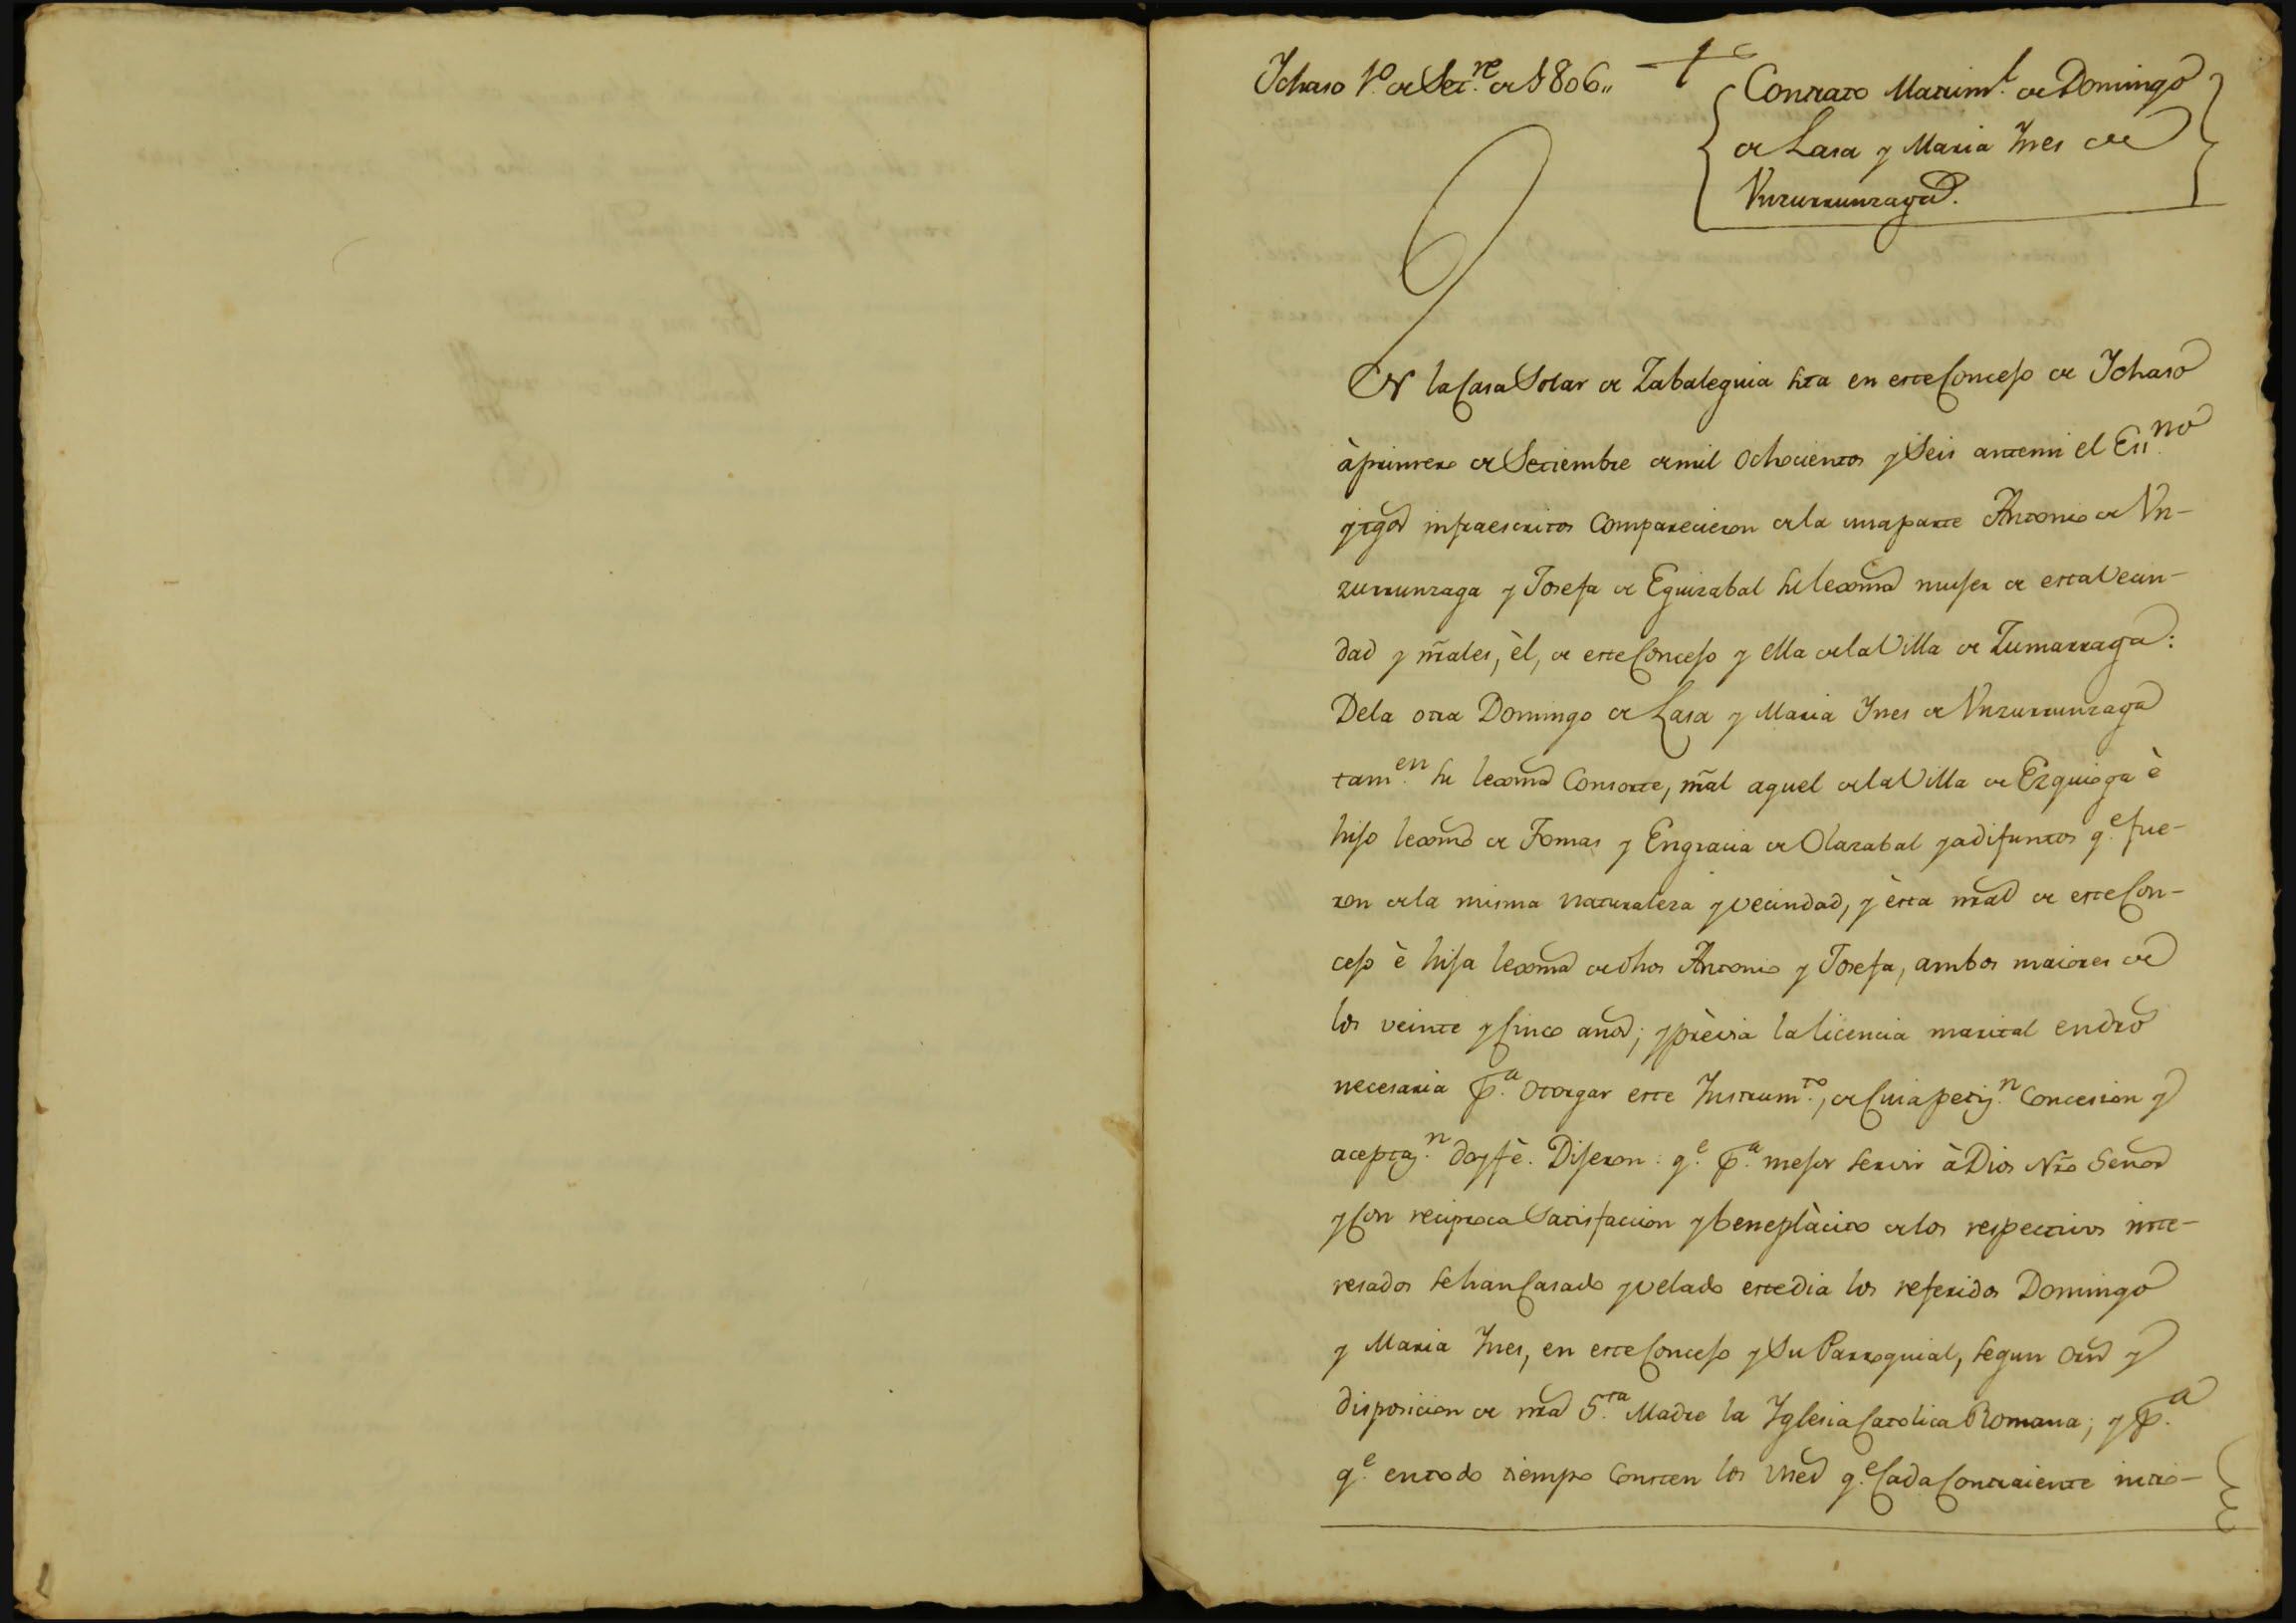 Ichaso 1º. de Set.re de 1806,,
Contrato Matrim.l de Domingo
de Lasa y Maria Ynes de
Vnzurrunzaga.
EN la Casa Solar de Zabaleguia sita en este Concejo de Ichaso
à primero de Setiembre de mil ochocientos y Seis ante mi el Ess.no
y tgos infraescritos Comparecieron de la una parte Antonio de Vn-
zurrunzaga y Josefa de Eguizabal su lexma mujer de esta Vecin-
dad y ñrales, èl, de este Concejo y ella de la Villa de Zumarraga:
De la otra Domingo de Lasa y Maria Ynes de Vnzurrunzaga
tam.en su lexma Consorte, ñral aquel de la Villa de Ezquioga è
hijo lexmo de Tomas y Engracia de Olazabal ya difuntos q.e fue-
ron de la misma naturaleza y vecindad, y èsta nral de este Con-
cejo è hija lexma de dhos Antonio y Josefa, ambos maiores de
los veinte y Cinco años; y prèvia la licencia marital en dro
necesaria p.a otorgar este Instrum.to, de Cuia petiz.n Concesion y
aceptaz.n doy fè. Dijeron: q.e p.a mejor servir à Dios Nro Señor
y Con reciproca Satisfaccion y beneplàcito de los respectivos inte-
resados se han Casado y velado este dia los referidos Domingo
y Maria Ynes, en este Concejo y Su Parroquial, segun orn y
disposicion de nra S.ta Madre la Yglesia Catolica Romana; y p.a
q.e en todo tiempo Consten los vnes q.e Cada Contraiente intro-